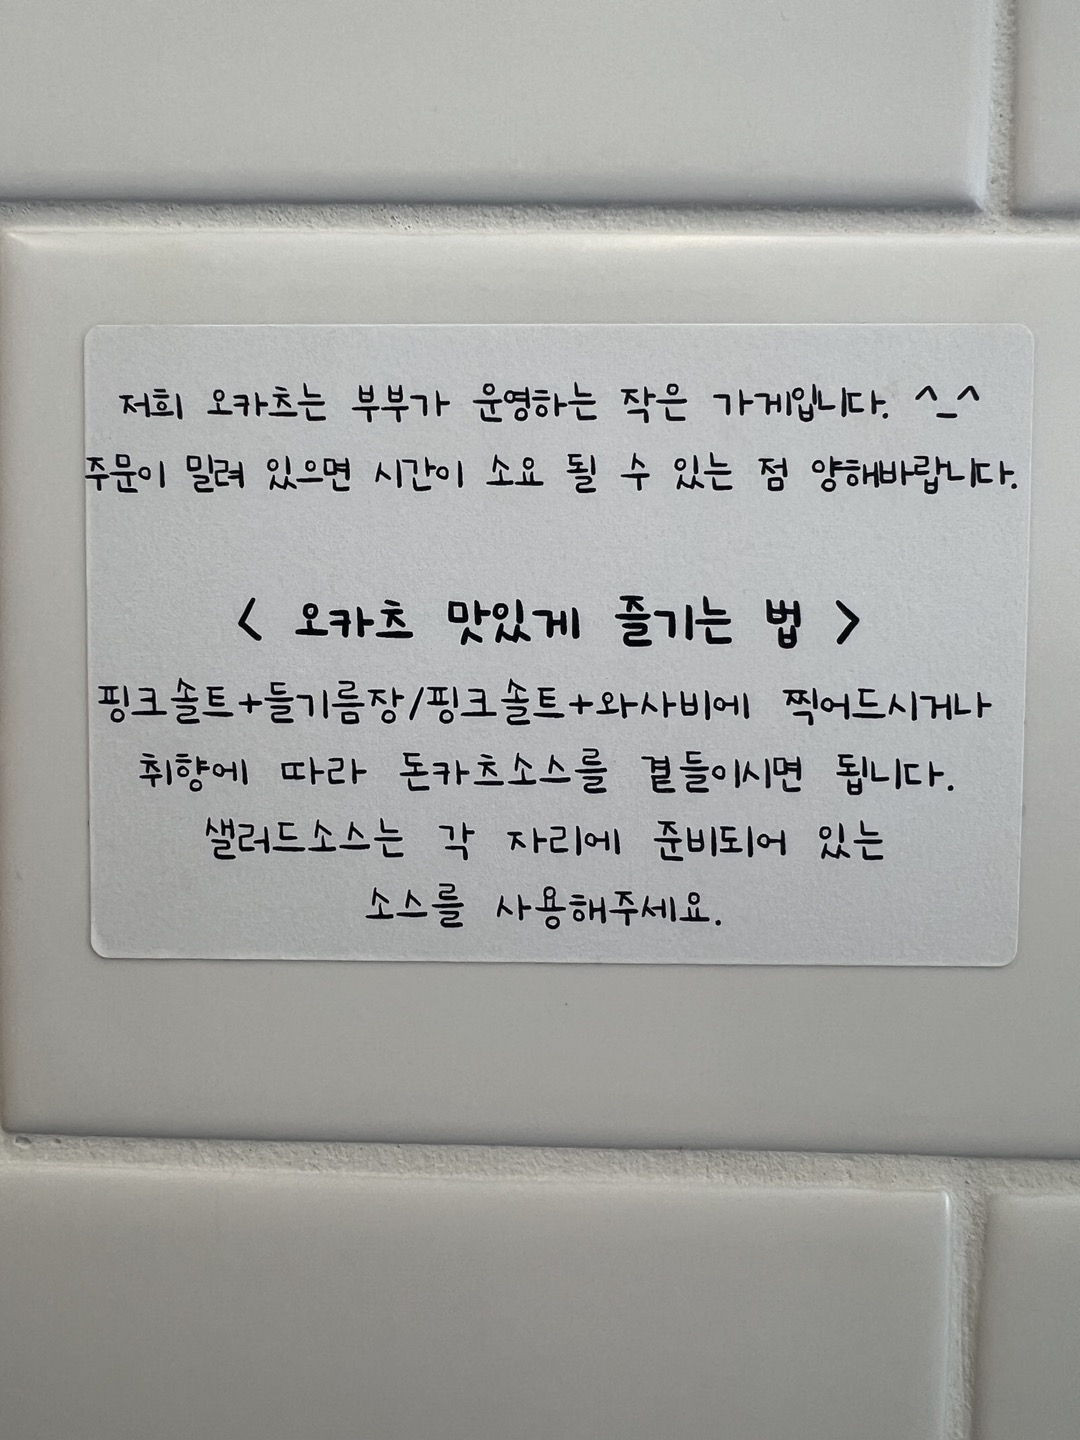 저희 오카츠는 부부가 운영하는 작은 가게입니다. ^_^
주문이 밀려 있으면 시간이 소요 될 수 있는 점 양해바랍니다.
< 오카츠 맛있게 즐기는 법 >
핑크솔트+들기름장/핑크솔트+와사비에 찍어드시거나
취향에 따라 돈카츠소스를 곁들이시면 됩니다.
샐러드소스는 각 자리에 준비되어 있는
소스를 사용해주세요.